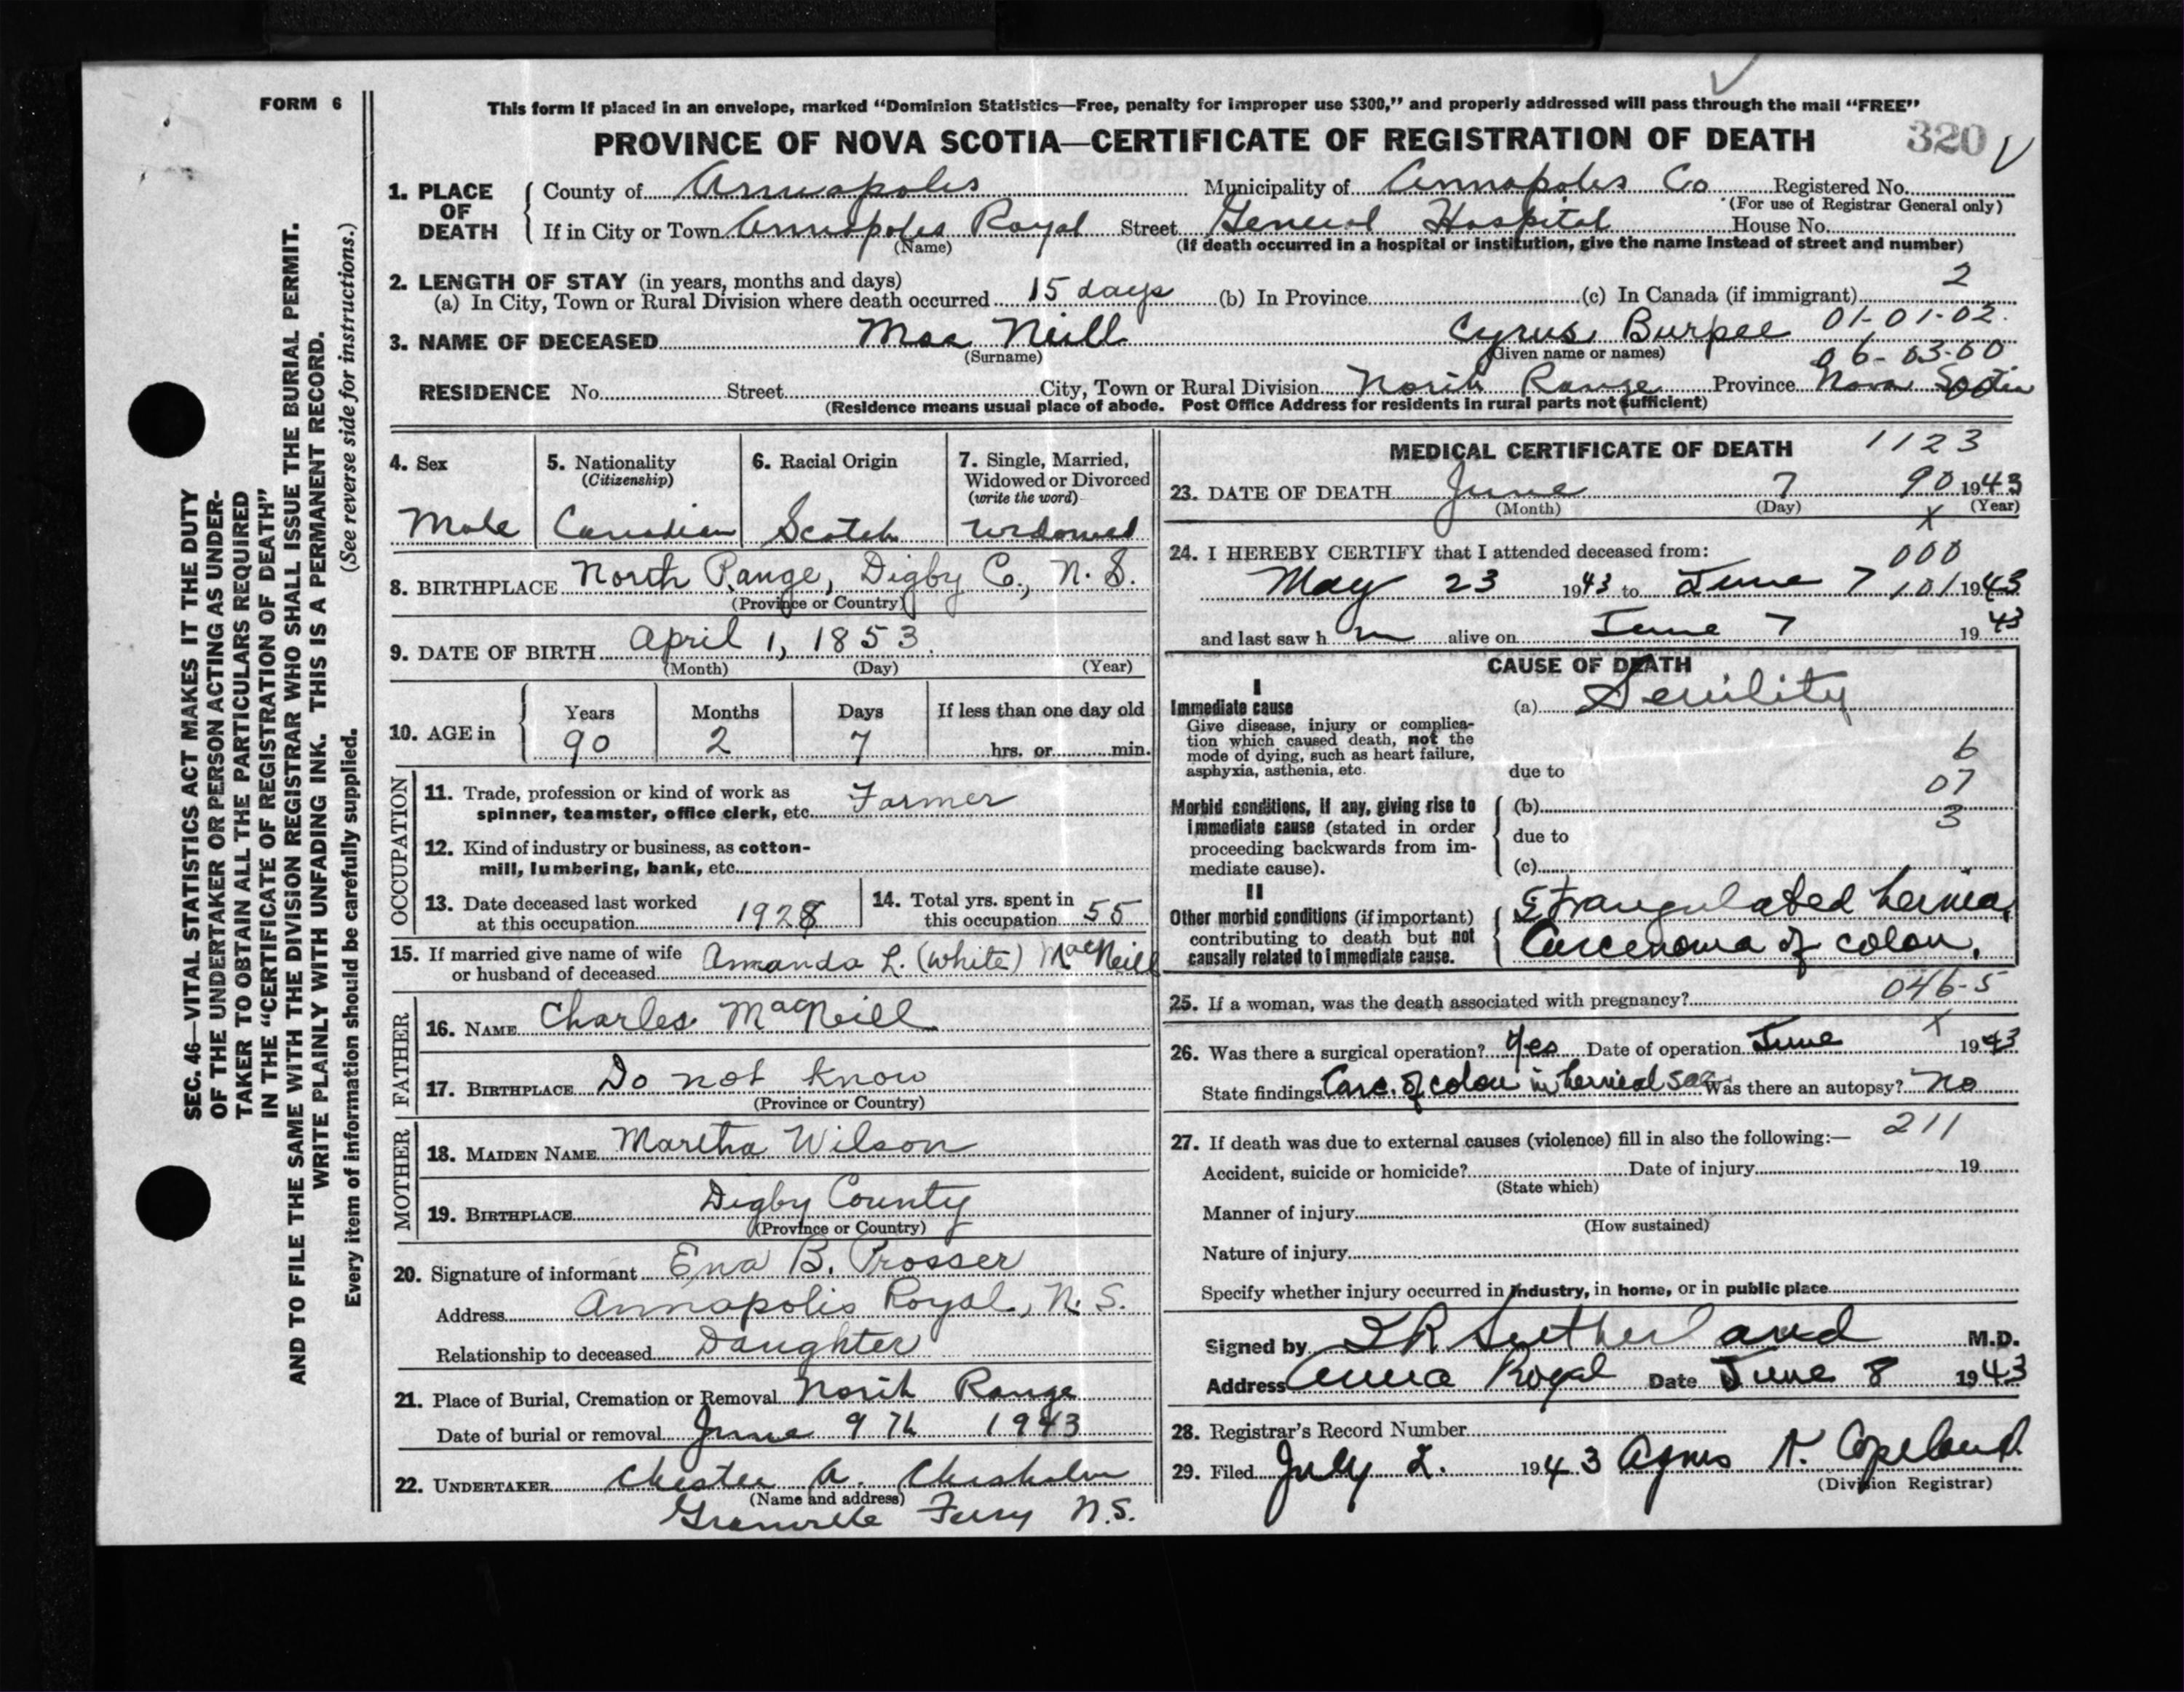 FORM 6
This form if placed in an envelope, marked "Dominion Statistics—Free, penalty for improper use $300," and properly addressed will pass through the mail "FREE"
PROVINCE OF NOVA SCOTIA—CERTIFICATE OF REGISTRATION OF DEATH
320
SEC. 46—VITAL STATISTICS ACT MAKES IT THE DUTY
OF THE UNDERTAKER OR PERSON ACTING AS UNDER-
TAKER TO OBTAIN ALL THE PARTICULARS REQUIRED
IN THE "CERTIFICATE OF REGISTRATION OF DEATH"
AND TO FILE THE SAME WITH THE DIVISION REGISTRAR WHO SHALL ISSUE THE BURIAL PERMIT.
WRITE PLAINLY WITH UNFADING INK. THIS IS A PERMANENT RECORD.
Every item of information should be carefully supplied. (See reverse side for instructions.)
1. PLACE OF DEATH
County of Annapolis Municipality of Annapolis Co Registered No.
(For use of Registrar General only)
If in City or Town Annapolis Royal Street General Hospital House No.
(Name) (If death occurred in a hospital or institution, give the name instead of street and number)
2. LENGTH OF STAY (in years, months and days)
(a) In City, Town or Rural Division where death occurred 15 days (b) In Province (c) In Canada (if immigrant) 2
3. NAME OF DECEASED Mac Neill Cyrus Burpee 01-01-02.
(Surname) (Given name or names) 06-03-00
RESIDENCE No. Street City, Town or Rural Division North Range Province Nova Scotia
(Residence means usual place of abode. Post Office Address for residents in rural parts not sufficient)
4. Sex
Male
5. Nationality
(Citizenship)
Canadian
6. Racial Origin
Scotch
7. Single, Married,
Widowed or Divorced
(write the word)
Widowed
8. BIRTHPLACE North Range, Digby Co., N. S.
(Province or Country)
9. DATE OF BIRTH April 1, 1853.
(Month) (Day) (Year)
10. AGE in
Years Months Days If less than one day old
90 2 7 hrs. or min.
OCCUPATION
11. Trade, profession or kind of work as
spinner, teamster, office clerk, etc. Farmer
12. Kind of industry or business, as cotton-
mill, lumbering, bank, etc.
13. Date deceased last worked
at this occupation 1928
14. Total yrs. spent in
this occupation 55
15. If married give name of wife
or husband of deceased Amanda L. (White) MacNeill
FATHER
16. NAME Charles MacNeill
17. BIRTHPLACE Do not know
(Province or Country)
MOTHER
18. MAIDEN NAME Martha Wilson
19. BIRTHPLACE Digby County
(Province or Country)
20. Signature of informant Ena B. Prosser
Address Annapolis Royal, N. S.
Relationship to deceased Daughter
21. Place of Burial, Cremation or Removal North Range
Date of burial or removal June 9 th 1943
22. UNDERTAKER Chester A. Chisholm
(Name and address)
Granville Ferry N.S.
MEDICAL CERTIFICATE OF DEATH 1123
23. DATE OF DEATH June 7 90 1943
(Month) (Day) (Year)
x
24. I HEREBY CERTIFY that I attended deceased from: 000
May 23 1943 to June 7 101 1943
and last saw h m alive on June 7 1943
CAUSE OF DEATH
I
Immediate cause
Give disease, injury or complica-
tion which caused death, not the
mode of dying, such as heart failure,
asphyxia, asthenia, etc.
(a) Senility
6
due to
07
Morbid conditions, if any, giving rise to
immediate cause (stated in order
proceeding backwards from im-
mediate cause).
(b)
3
due to
(c)
II
Other morbid conditions (if important)
contributing to death but not
causally related to immediate cause.
Strangulated hernia,
Carcenoma of colon.
25. If a woman, was the death associated with pregnancy? 046-5
x
26. Was there a surgical operation? Yes Date of operation June 1943
State findings Carc. of colon in hernial sac Was there an autopsy? No
27. If death was due to external causes (violence) fill in also the following:— 211
Accident, suicide or homicide? Date of injury 19
(State which)
Manner of injury
(How sustained)
Nature of injury
Specify whether injury occurred in industry, in home, or in public place
Signed by Sutherland M.D.
Address Anna Royal Date June 8 1943
28. Registrar's Record Number
29. Filed July 2. 1943 Agnes Copeland
(Division Registrar)